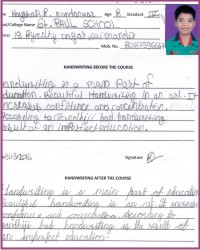 Age 8 Standard III
College Name St. PAUL SCHOOL
Mob. No.
HANDWRITING BEFORE THE COURSE
Handwriting is a main Part of
education. Beautiful Handwriting is an art. It
increases confidence and concentration.
According to Gandhiji bad handwriting
is result of an imperfect education.
2016 Signature
HANDWRITING AFTER THE COURSE
Handwriting is a main part of education
Beautiful handwriting is an art It increases
confidence and concentration According to
Gandhiji bad handwriting is the result of
an imperfect education